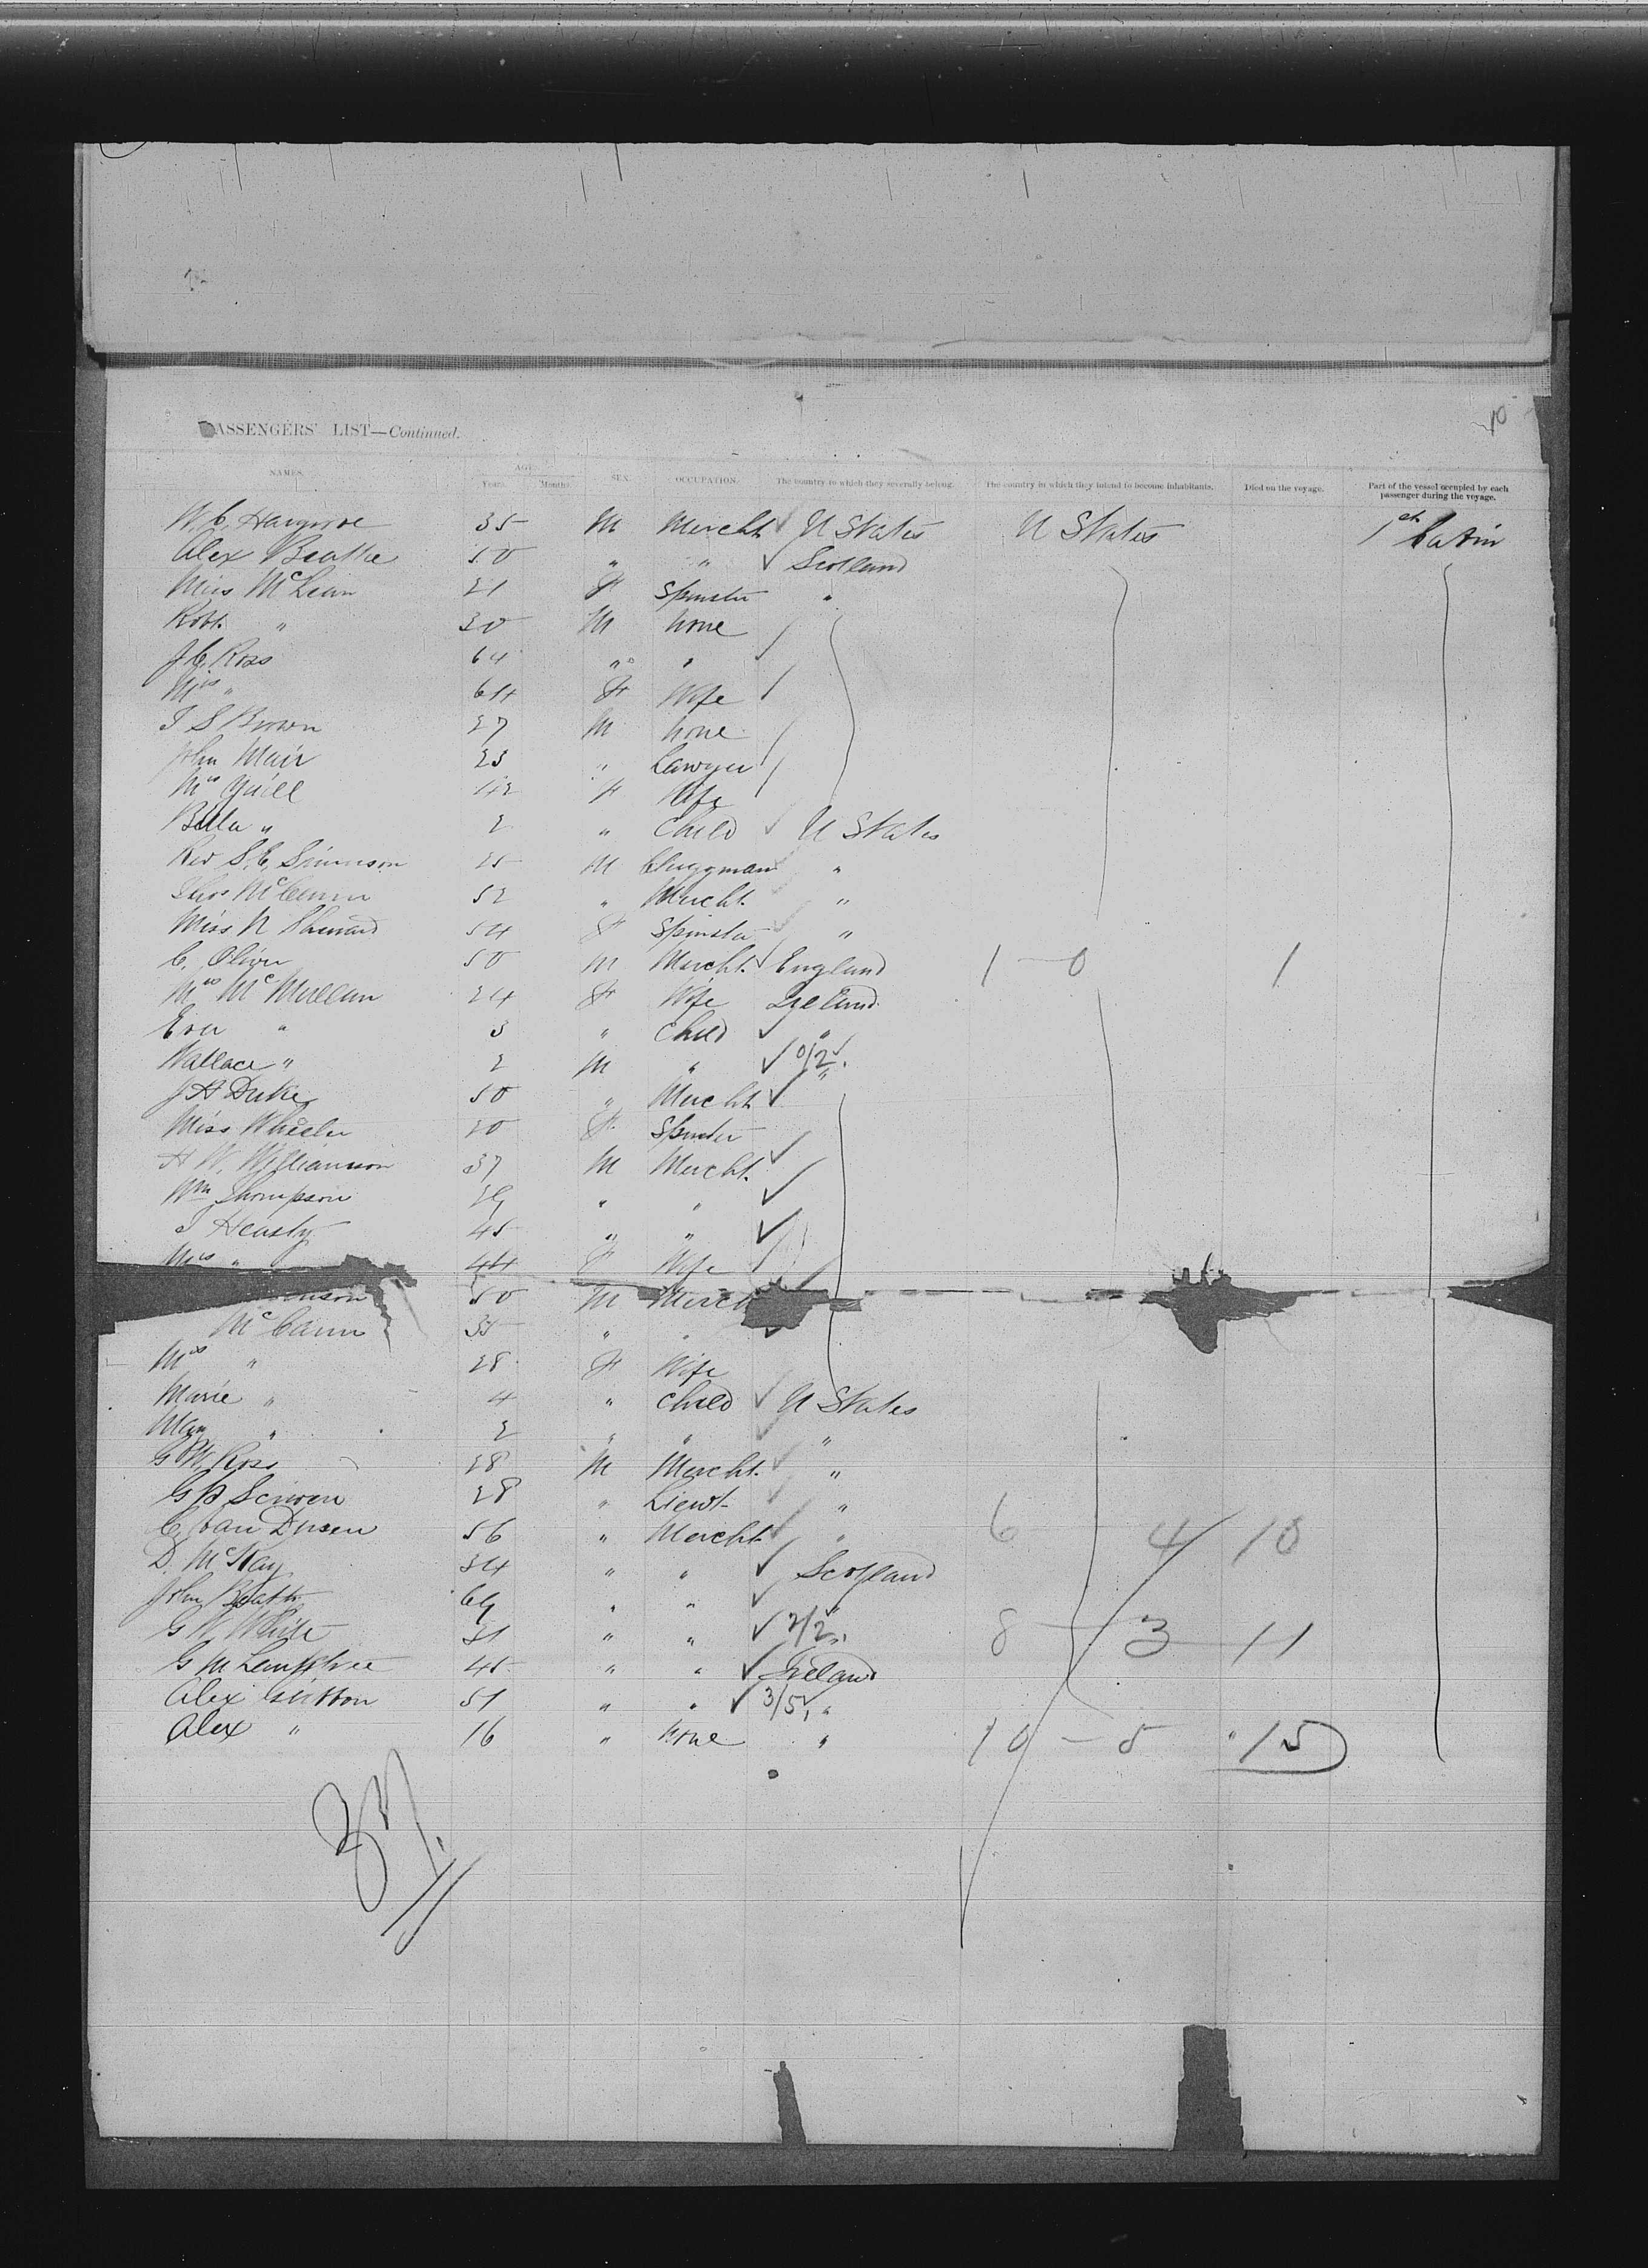 10
PASSENGERS' LIST—Continued.
NAMES. AGE Years. Months. SEX. OCCUPATION. The country to which they severally belong. The country in which they intend to become inhabitants. Died on the voyage. Part of the vessel occupied by each passenger during the voyage.
W. C. Hargrove 35 M Mercht U States U States 1st Cabin
Alex Beattie 50 " " Scotland
Miss McLean 21 F Spinster "
Robt. " 30 M None
J C Ross 64 " "
Mrs " 64 F Wife
J S Brown 27 M None
John Muir 23 " Lawyer
Mrs 42 F Wife
Bella " 2 " Child U States
Rev S. E. Simonson 25 M Clergyman "
Thos 52 " Mercht. "
Miss N 54 F Spinster "
C. Oliver 50 M Mercht. England 1 - 0 1
Mrs McMullan 24 F Wife Ireland
Eva " 3 " Child "
Wallace " 2 M " 0/2 "
J A Duke 50 " Mercht
Miss Wheeler 20 F Spinster
H W. Williamson 37 M Mercht.
Wm Thompson " "
J Heasty 45 " "
Mrs " 44 F Wife
50 M Merch
McCann 35 " "
Mrs " 28 F Wife
Marie " 4 " Child U States
May " 2 " " "
G W Ross 28 M Mercht. "
G P Scriven 28 " Lieut "
C. Van Dusen 56 " Mercht " 6 4 10
D. McKay 34 " " Scotland
John Beath 69 " "
G W White 31 " " 2/2 " 8 - 3 - 11
G M 45 " " Ireland
Alex 51 " " 3/5 "
Alex " 16 " None " 10 - 5 " 15
37